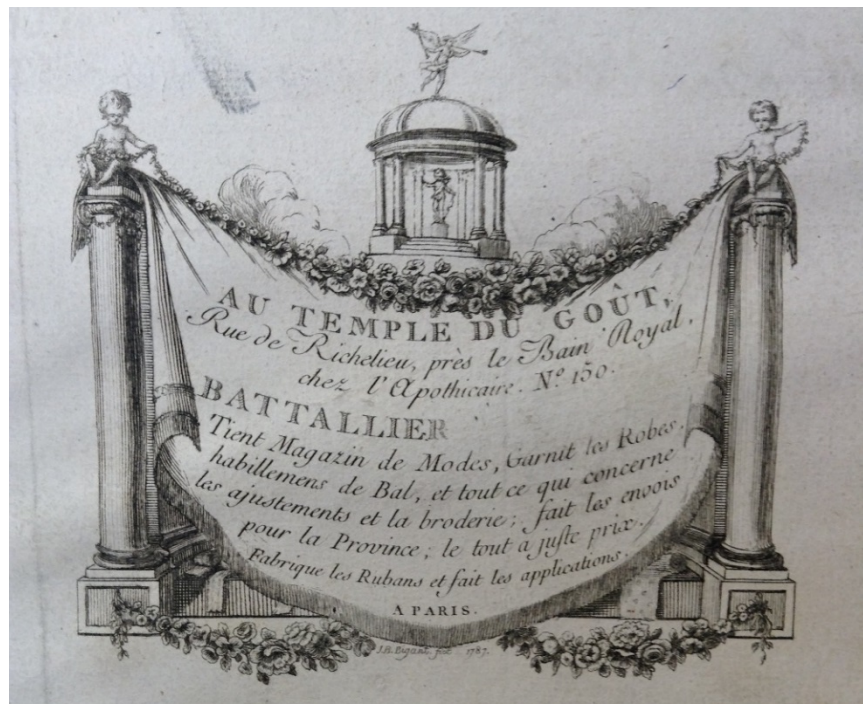 AU TEMPLE DU GOÛT,
Rue de Richelieu, près le Bain Royal,
chez l'Apothicaire. Nº. 150.
BATTALLIER
Tient Magazin de Modes, Garnit les Robes,
habillemens de Bal, et tout ce qui concerne
les ajustements et la broderie; fait les envois
pour la Province; le tout a juſte prix.
Fabrique les Rubans et fait les applications.
A PARIS.
J.B. fec. 1787.